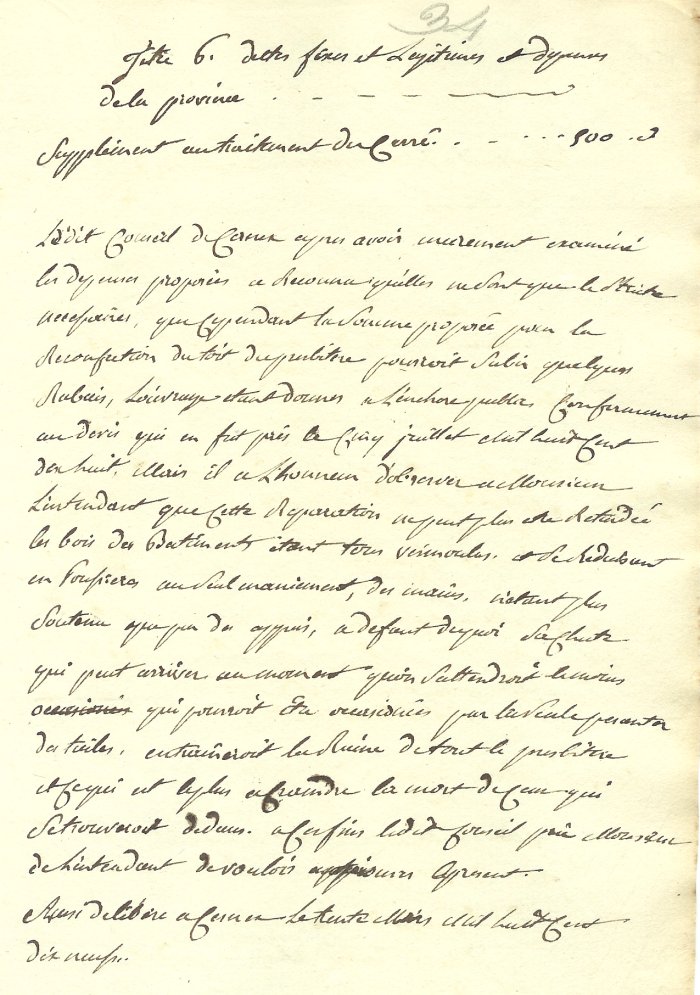 34
Titre 6. dettes fixes et Legitimes et depenses
de la province . - - -
Supplément au traitement du Curé. . - . . . . 500 .
Ledit Conseil de apres avoir murement examiné
les depenses proposées a Reconnu qu'elles ne sont que le Stricte
necessaires, que Cependant la Somme proposée pour la
Reconfection du tôit du presbitere pourroit Subir quelques
Rabais, Louvrage etant donnes a Lenchere publics Conformement
au devis qui en fut près le Cinq juillet Mil huit Cent
dex huit. Mais il a Lhonneur d'observer a Monsieur
Lintendant que Cette Reparation ne peut plus etre Retardée
les bois des Batiments étant tous vermoules. et Se Reduisant
en Pousieres au Seul maniement, des mains, netant plus
Soutenu que par des appuis, a defaut de quoi Sa Chute
qui peut arriver au moment qu'on Sattendroit le moins
occasionés qui pourroit être occasionées par la Seule pesanter
des tuiles. entraîneroit la Ruine de tout le presbitere
et Ce qui est le plus a Craindre la mort de Ceux qui
Se trouveroit dedans. a Ces fins ledit Conseil prie Monsieur
de Lintendant de vouloir apresent.
Ainsi delibéré a le trente Mars Mil huit Cent
dix neuf.